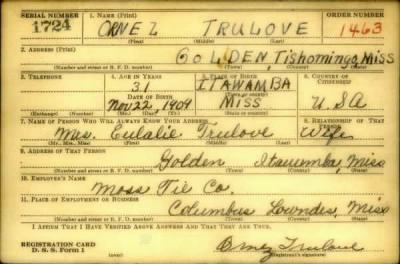 SERIAL NUMBER 1. NAME (Print) ORDER NUMBER
1724 ORNEZ TRULOVE 1463
(First) (Middle) (Last)
2. ADDRESS (Print)
GOLDEN, Tishomingo, Miss
(Number and street or R. F. D. number) (Town) (County) (State)
3. TELEPHONE 4. AGE IN YEARS 5. PLACE OF BIRTH 6. COUNTRY OF CITIZENSHIP
31 ITAWAMBA
(Town or county)
DATE OF BIRTH
Nov 22, 1909 MISS U.S.A
(Exchange) (Number) (Mo.) (Day) (Yr.) (State or country)
7. NAME OF PERSON WHO WILL ALWAYS KNOW YOUR ADDRESS 8. RELATIONSHIP OF THAT PERSON
Mrs. Eulalie Trulove Wife
(Mr., Mrs., Miss) (First) (Middle) (Last)
9. ADDRESS OF THAT PERSON
Golden Itawamba, Miss
(Number and street or R. F. D. number) (Town) (County) (State)
10. EMPLOYER'S NAME
Moss Tie Co.
11. PLACE OF EMPLOYMENT OR BUSINESS
Columbus Lowndes, Miss
(Number and street or R. F. D. number) (Town) (County) (State)
I AFFIRM THAT I HAVE VERIFIED ABOVE ANSWERS AND THAT THEY ARE TRUE.
REGISTRATION CARD
D. S. S. Form 1 (over) Ornez Trulove
(Registrant's signature)